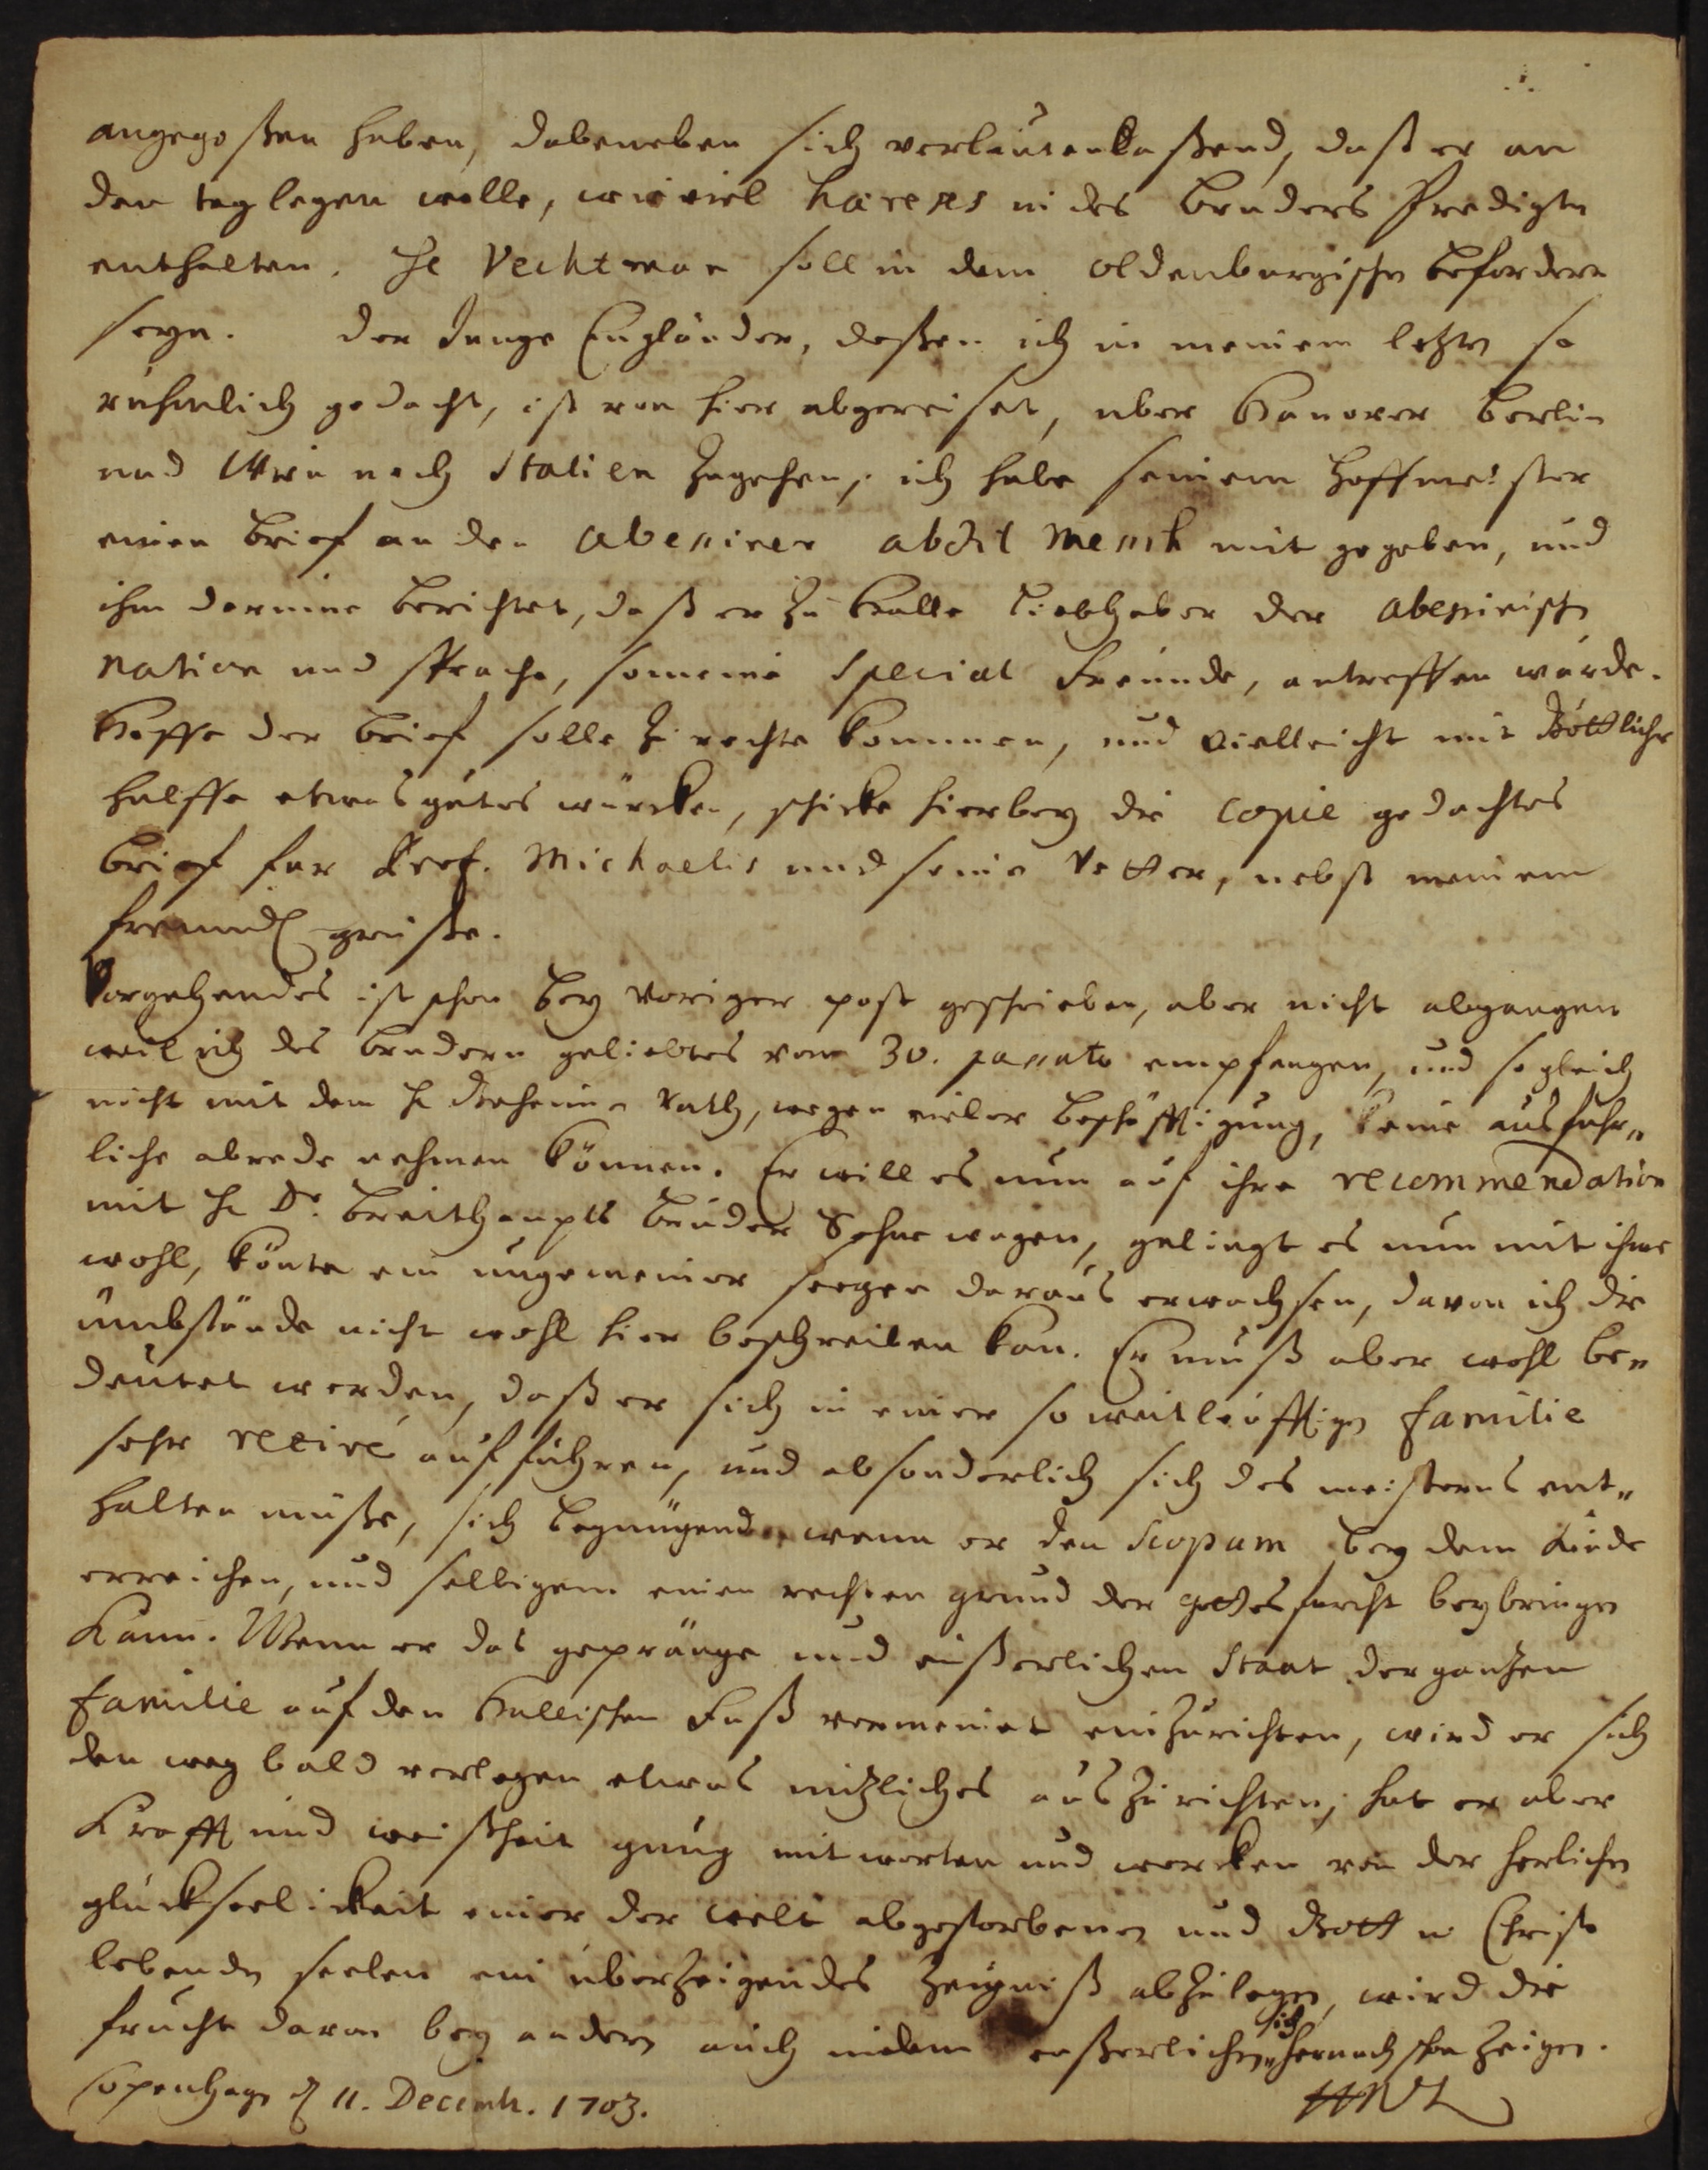 angegoßen haben, dabeneben sich verlauten laßend, daß er an
den tag legen wolle, wie viel hæreses in des Bruders Predigten
enthalten. H. Vechtman soll in dem oldenburgischen befordert
seyn. Der Junge Engländer, deßen ich in meinem letzten so
rühmlich gedacht, ist von hier abgereiset, uber Hanover Berlin
und Wien nach Italien zugehen; ich habe seinem Hoffmeister
einen brief an den abessiner abdil Messih mit gegeben, und
ihm darinne berichtet, daß er zu Halle Liebhaber der abessinischen
nation und sprache, so meine special Freunde, antreffen würde.
Hoffe der brief solle zu rechte kommen, und vielleicht mit Göttlicher
hülffe etwas gutes würcken, schicke hierbey die copie gedachtes
brief fur Prof. Michaelis und seine Vetter, nebst meinem
freundl. gruße.
Vorgehendes ist schon bey voriger post geschrieben, aber nicht abgangen
weil ich des bruders geliebtes vom 30. passato empfangen, und so gleich
nicht mit dem H. Geheimen Rath, wegen vieler beschäfftigung, keine ausführ„
liche abrede nehmen können. Er will es nun auf ihre recommendation
mit H. Dr. Breithaupts bruder Sohne wagen, gelingt es nun mit ihme
wohl, könte ein ungemeiner seegen daraus erwachsen, davon ich die
umbstände nicht wohl hier beschreiben kan. Er muß aber wohl be„
deutet werden, daß er sich in einer so weitleufftigen familie
sehr retiré aufführen, und absonderlich sich des meisterns ent„
halten müße, sich begnügend wenn er den scopum bey dem Kinde
erreichen, und selbigem einen rechten grund der gottesfurcht beybringen
Kann. Wenn er das gepränge und eußerlichen Staat der gantzen
familie auf den Hallischen Fuß vermeinet einzurichten, wird er sich
den weg bald verlegen etwas nützliches auszurichten; hat er aber
Krafft und weißheit gnug mit worten und wercken von der herlichen
glückseelickeit einer der welt abgestorbenen und Gott in Christo
lebenden seelen ein uberzeigendes zeugniß abzulegen, wird die
frucht davon bey andern auch in dem eußerlichen sich hernach schon zeigen.
Copenhagen d. 11. Decemb. 1703.
HWL